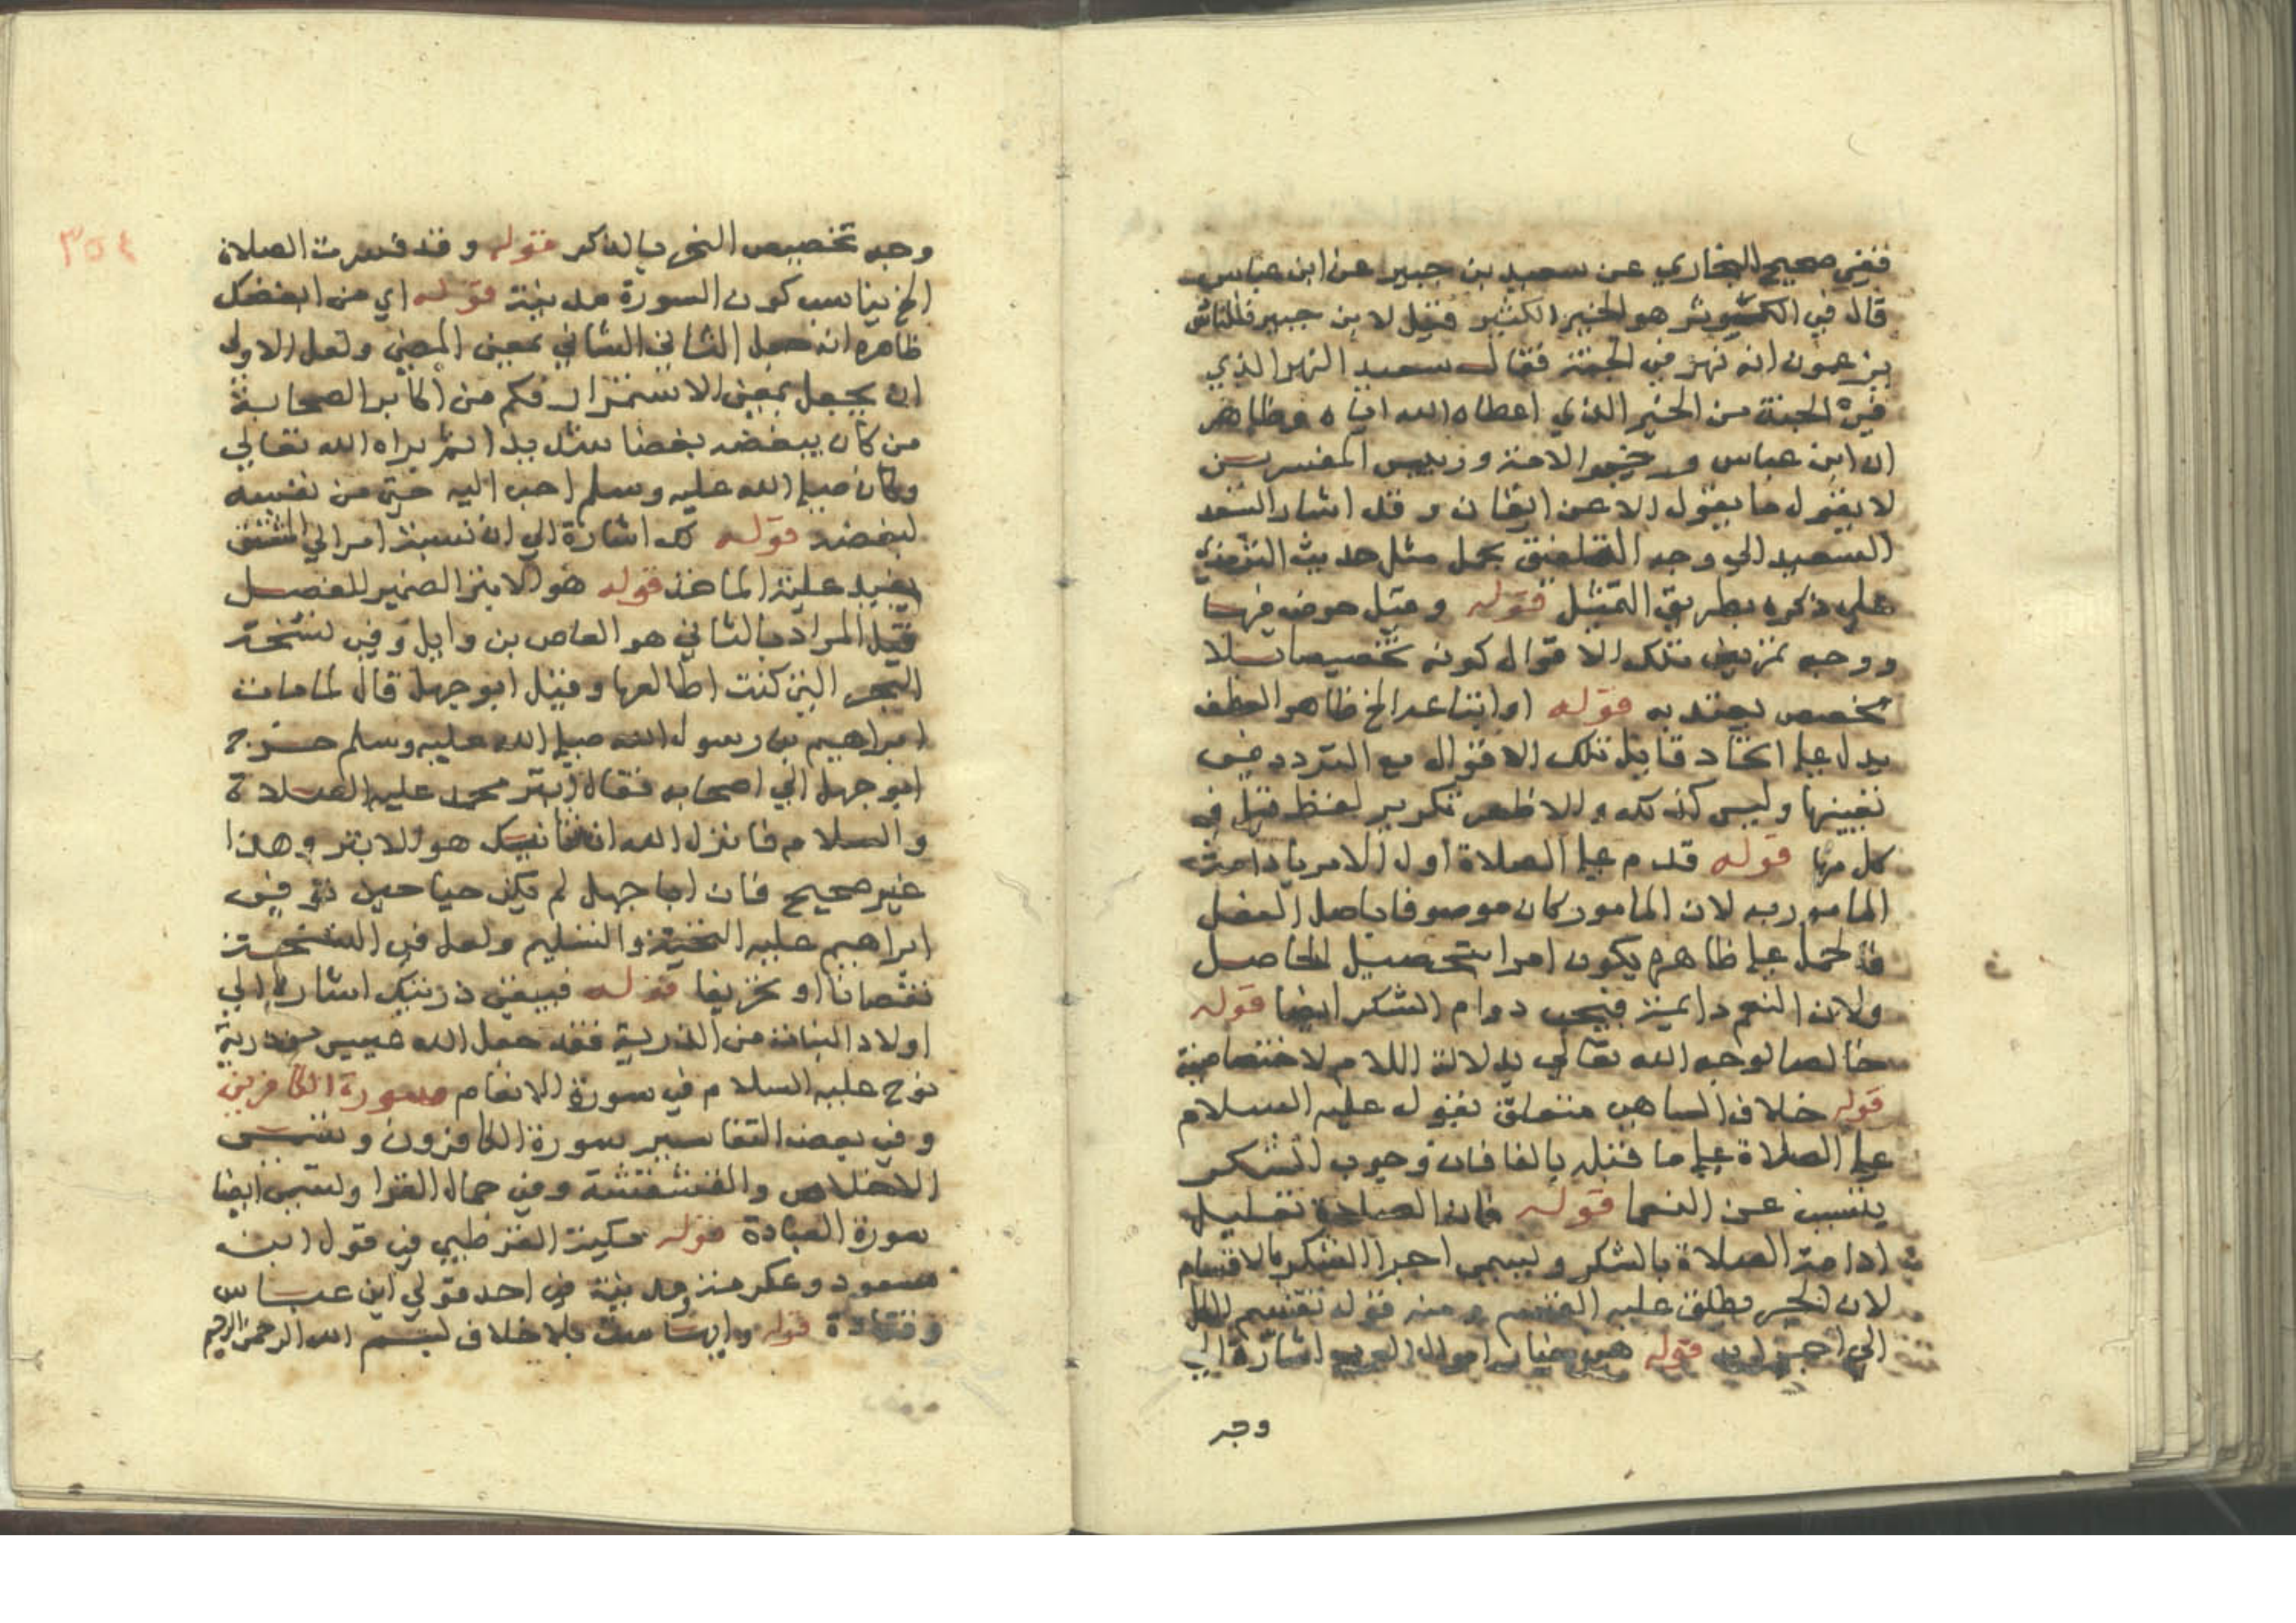 ففي صحيح البخاري عن سعيد بن جبير عن ابن عباس
قال في الكوثر هو الخير الكثير فقيل لابن جبير فالناس
يزعمون انه نهر في الجنة فقال سعيد النهر الذي
في الجنة من الخير الذي اعطاه الله اياه وظاهر
ان ابن عباس وهو الامة ورئيس المفسرين
لا يقول ما يقول الا عن اتقان وقد اشار السعد
السعيد الي وجه التلفيق بحمل مثل حديث الترمذي
علي ذكره بطريق التمثيل قوله وقيل حوض فيها
ووجه تمريض تلك الاقوال كونه تخصيصا بلا
مخصص يعتد به قوله او اتباعه الخ ظاهر العطف
يدل علي اتحاد قايل تلك الاقوال مع التردد في
تعيينها وليس كذلك والاظهر تكرير لفظ قيل في
كل منها قوله قدم علي الصلاة اول الامر بادامة
المامور به لان المامور كان موصوفا باصل الفعل
فالحمل علي ظاهره يكون امرا بتحصيل الحاصل
ولان النعم دايمة فيجب دوام الشكر ايضا قوله
خالصا لوجه الله تعالي بدلالة اللام الاختصاصية
قوله خلاف الساهي متعلق بقوله عليه السلام
علي الصلاة علي ما قبله بالفا فان وجوب الشكر
يتسبب عن النعما قوله فان الصلاة تعليل
ادامة الصلاة بالشكر ويسمي اجزا الشكر بالاقسام
لان الجزء يطلق عليه القسم ومنه قوله تقسيم الكل
الي اجزايه قوله هي خيار اموال العرب اشارة الي
وجه
٣٥٤
وجه تخصيص النحر بالذكر قوله وقد فسرت الصلاة
الخ يناسب كون السورة مدنية قوله اي من ابغضك
ظاهره انه جعل الشاني بمعني المضي ولعل الاولي
ان يجعل بمعني الاستمرار فكم من اكابر الصحابة
من كان يبغضه بغضا شديدا ثم براه الله تعالي
وكان صلي الله عليه وسلم احب اليه حتي من نفسه
لبغضه قوله لك اشارة الي ان نسبة امر الي المشتق
يفيد علية الماخذ قوله هو الابتر الضمير للفصل
قيل المراد بالشاني هو العاص بن وايل وفي نسخة
البحر التي كنت اطالعها وقيل ابو جهل قال لما مات
ابراهيم بن رسول الله صلي الله عليه وسلم خرج
ابو جهل الي اصحابه فقال ابتر محمد عليه الصلاة
والسلام فانزل الله ان شانيك هو الابتر وهذا
غير صحيح فان ابا جهل لم يكن حيا حين توفي
ابراهيم عليه التحية والتسليم ولعل في النسخة
نقصانا او تحريفا قوله فيبقي ذريتك اشارة الي
اولاد البنات من الذرية فقد جعل الله عيسي من ذرية
نوح عليه السلام في سورة الانعام سورة الكافرين
وفي بعض التفاسير سورة الكافرون وتسمي
الاخلاص والمقشقشة وفي جمال القرا وتسمي ايضا
سورة العبادة قوله مكية القرطبي في قول ابن
مسعود وعكرمة ومدنية في احد قولي ابن عباس
وقتادة قوله وايها ست بلا خلاف بسم الله الرحمن الرحيم